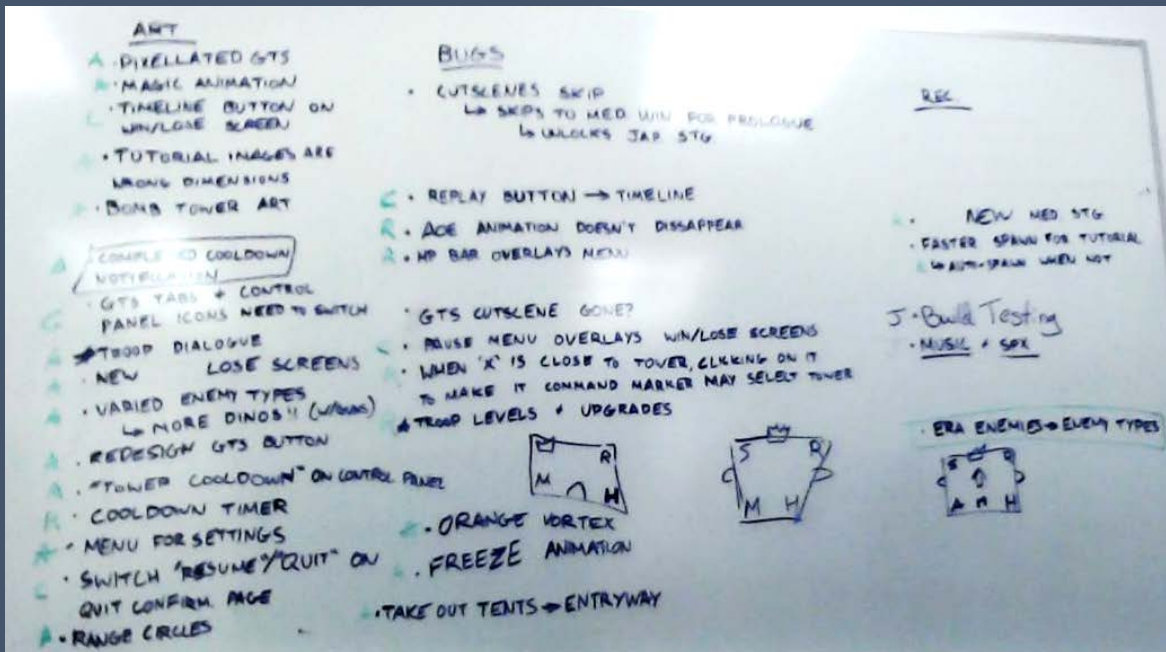 ART
A · PIXELLATED GTS
A · MAGIC ANIMATION
C · TIMELINE BUTTON ON
WIN/LOSE SCREEN
A · TUTORIAL IMAGES ARE
WRONG DIMENSIONS
A · BOMB TOWER ART
COOLDOWN
NOTIFICATION
· GTS TABS + CONTROL
PANEL ICONS NEED TO SWITCH
TROOP DIALOGUE
· NEW LOSE SCREENS
· VARIED ENEMY TYPES
↳ MORE DINOS!! (W/GUNS)
A · REDESIGN GTS BUTTON
A · "TOWER COOLDOWN" ON CONTROL PANEL
· COOLDOWN TIMER
A · MENU FOR SETTINGS
C · SWITCH "RESUME"/"QUIT" ON
QUIT CONFIRM. PAGE
A · RANGE CIRCLES
BUGS
· CUTSCENES SKIP
↳ SKIPS TO MED WIN FOR PROLOGUE
↳ UNLOCKS JAP STG
C · REPLAY BUTTON → TIMELINE
R · AOE ANIMATION DOESN'T DISSAPPEAR
R · HP BAR OVERLAYS MENU
· GTS CUTSCENE GONE?
C · PAUSE MENU OVERLAYS WIN/LOSE SCREENS
· WHEN 'X' IS CLOSE TO TOWER, CLICKING ON IT
TO MAKE IT COMMAND MARKER MAY SELECT TOWER
TROOP LEVELS + UPGRADES
R
M H
S R
M H
· ORANGE VORTEX
· FREEZE ANIMATION
· TAKE OUT TENTS → ENTRYWAY
REC.
· NEW MED STG
· FASTER SPAWN FOR TUTORIAL
↳ AUTO-SPAWN WHEN NOT
J · Build Testing
· MUSIC + SFX
· ERA ENEMIES → ENEMY TYPES
S R
A M H